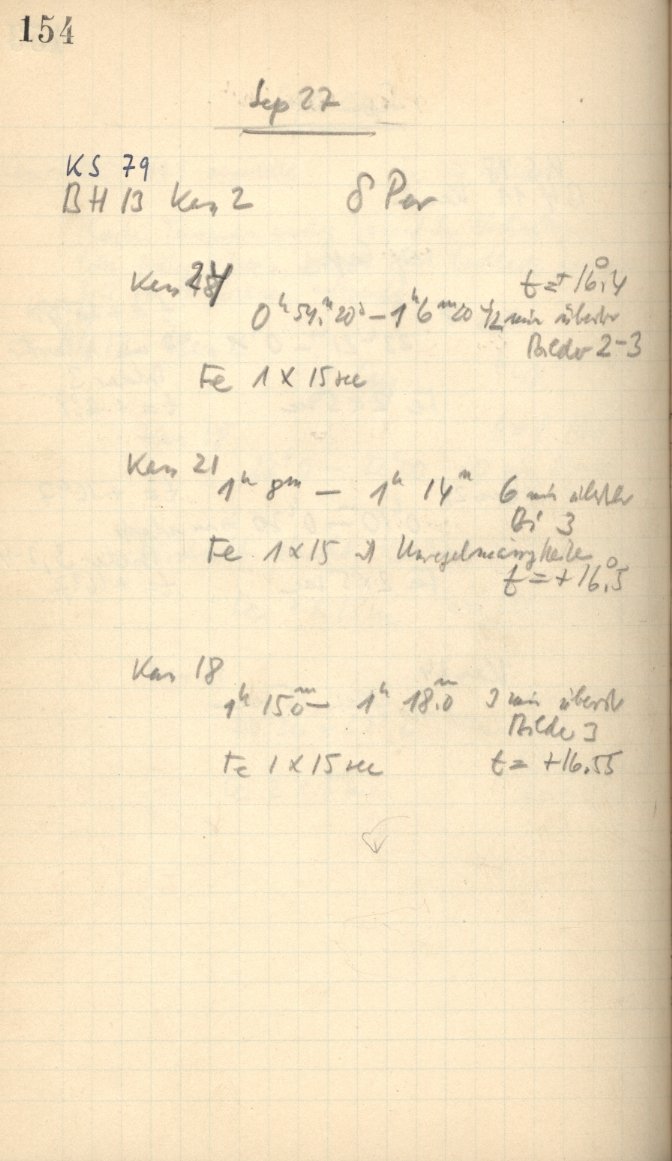 154
Sep 27
KS 79
BH 13 Kas 2 δ Per
Kas 24 t = + 16.°4
0ʰ 54.ᵐ 20ˢ – 1ʰ 6ᵐ 20 min
Bilder 2–3
Fe 1 × 15 sec
Kas 21
1ʰ 8ᵐ – 1ʰ 14ᵐ 6 min
Bi 3
Fe 1 × 15 Unregelmässigkeiten
t = + 16.°5
Kas 18
1ʰ 15.0ᵐ – 1ʰ 18.0ᵐ 3 min
Bilder 3
Fe 1 × 15 sec t = +16.55